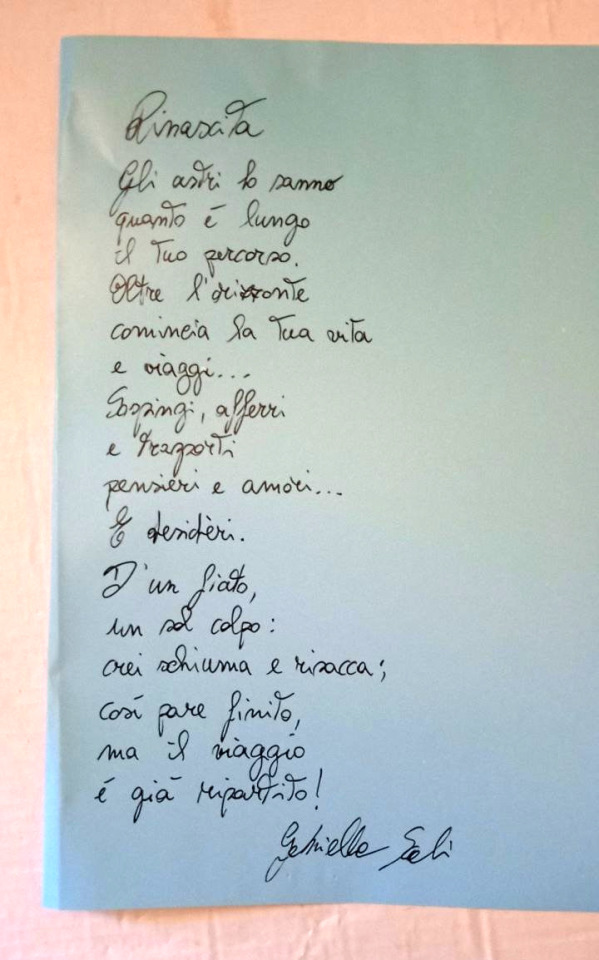 Rinascita
Gli astri lo sanno
quanto è lungo
il tuo percorso.
Oltre l'orizzonte
comincia la tua vita
e viaggi...
Sospingi, afferri
e trasporti
pensieri e amori...
E desidèri.
D'un fiato,
un sol colpo:
crei schiuma e risacca;
così pare finito,
ma il viaggio
è già ripartito!